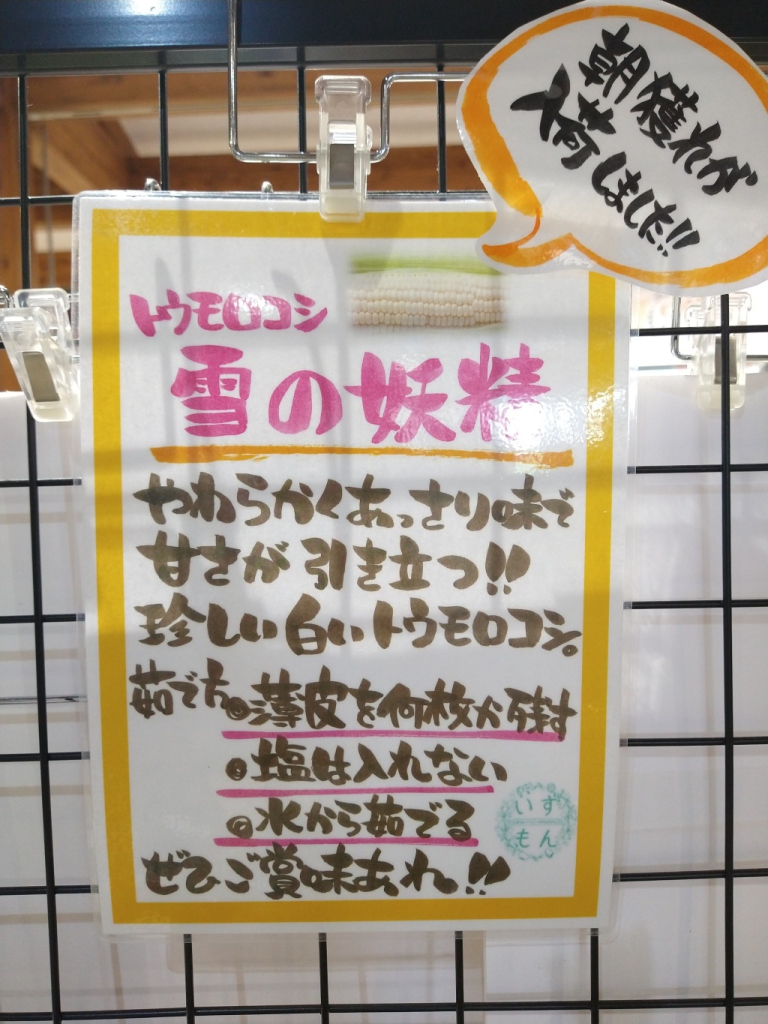 朝獲れが
入荷しました!!
トウモロコシ
雪の妖精
やわらかくあっさり味で
甘さが引き立つ!!
珍しい白いトウモロコシ。
茹で方●薄皮を何枚か残す
●塩は入れない
●水から茹でる
ぜひご賞味あれ!!
いず
もん